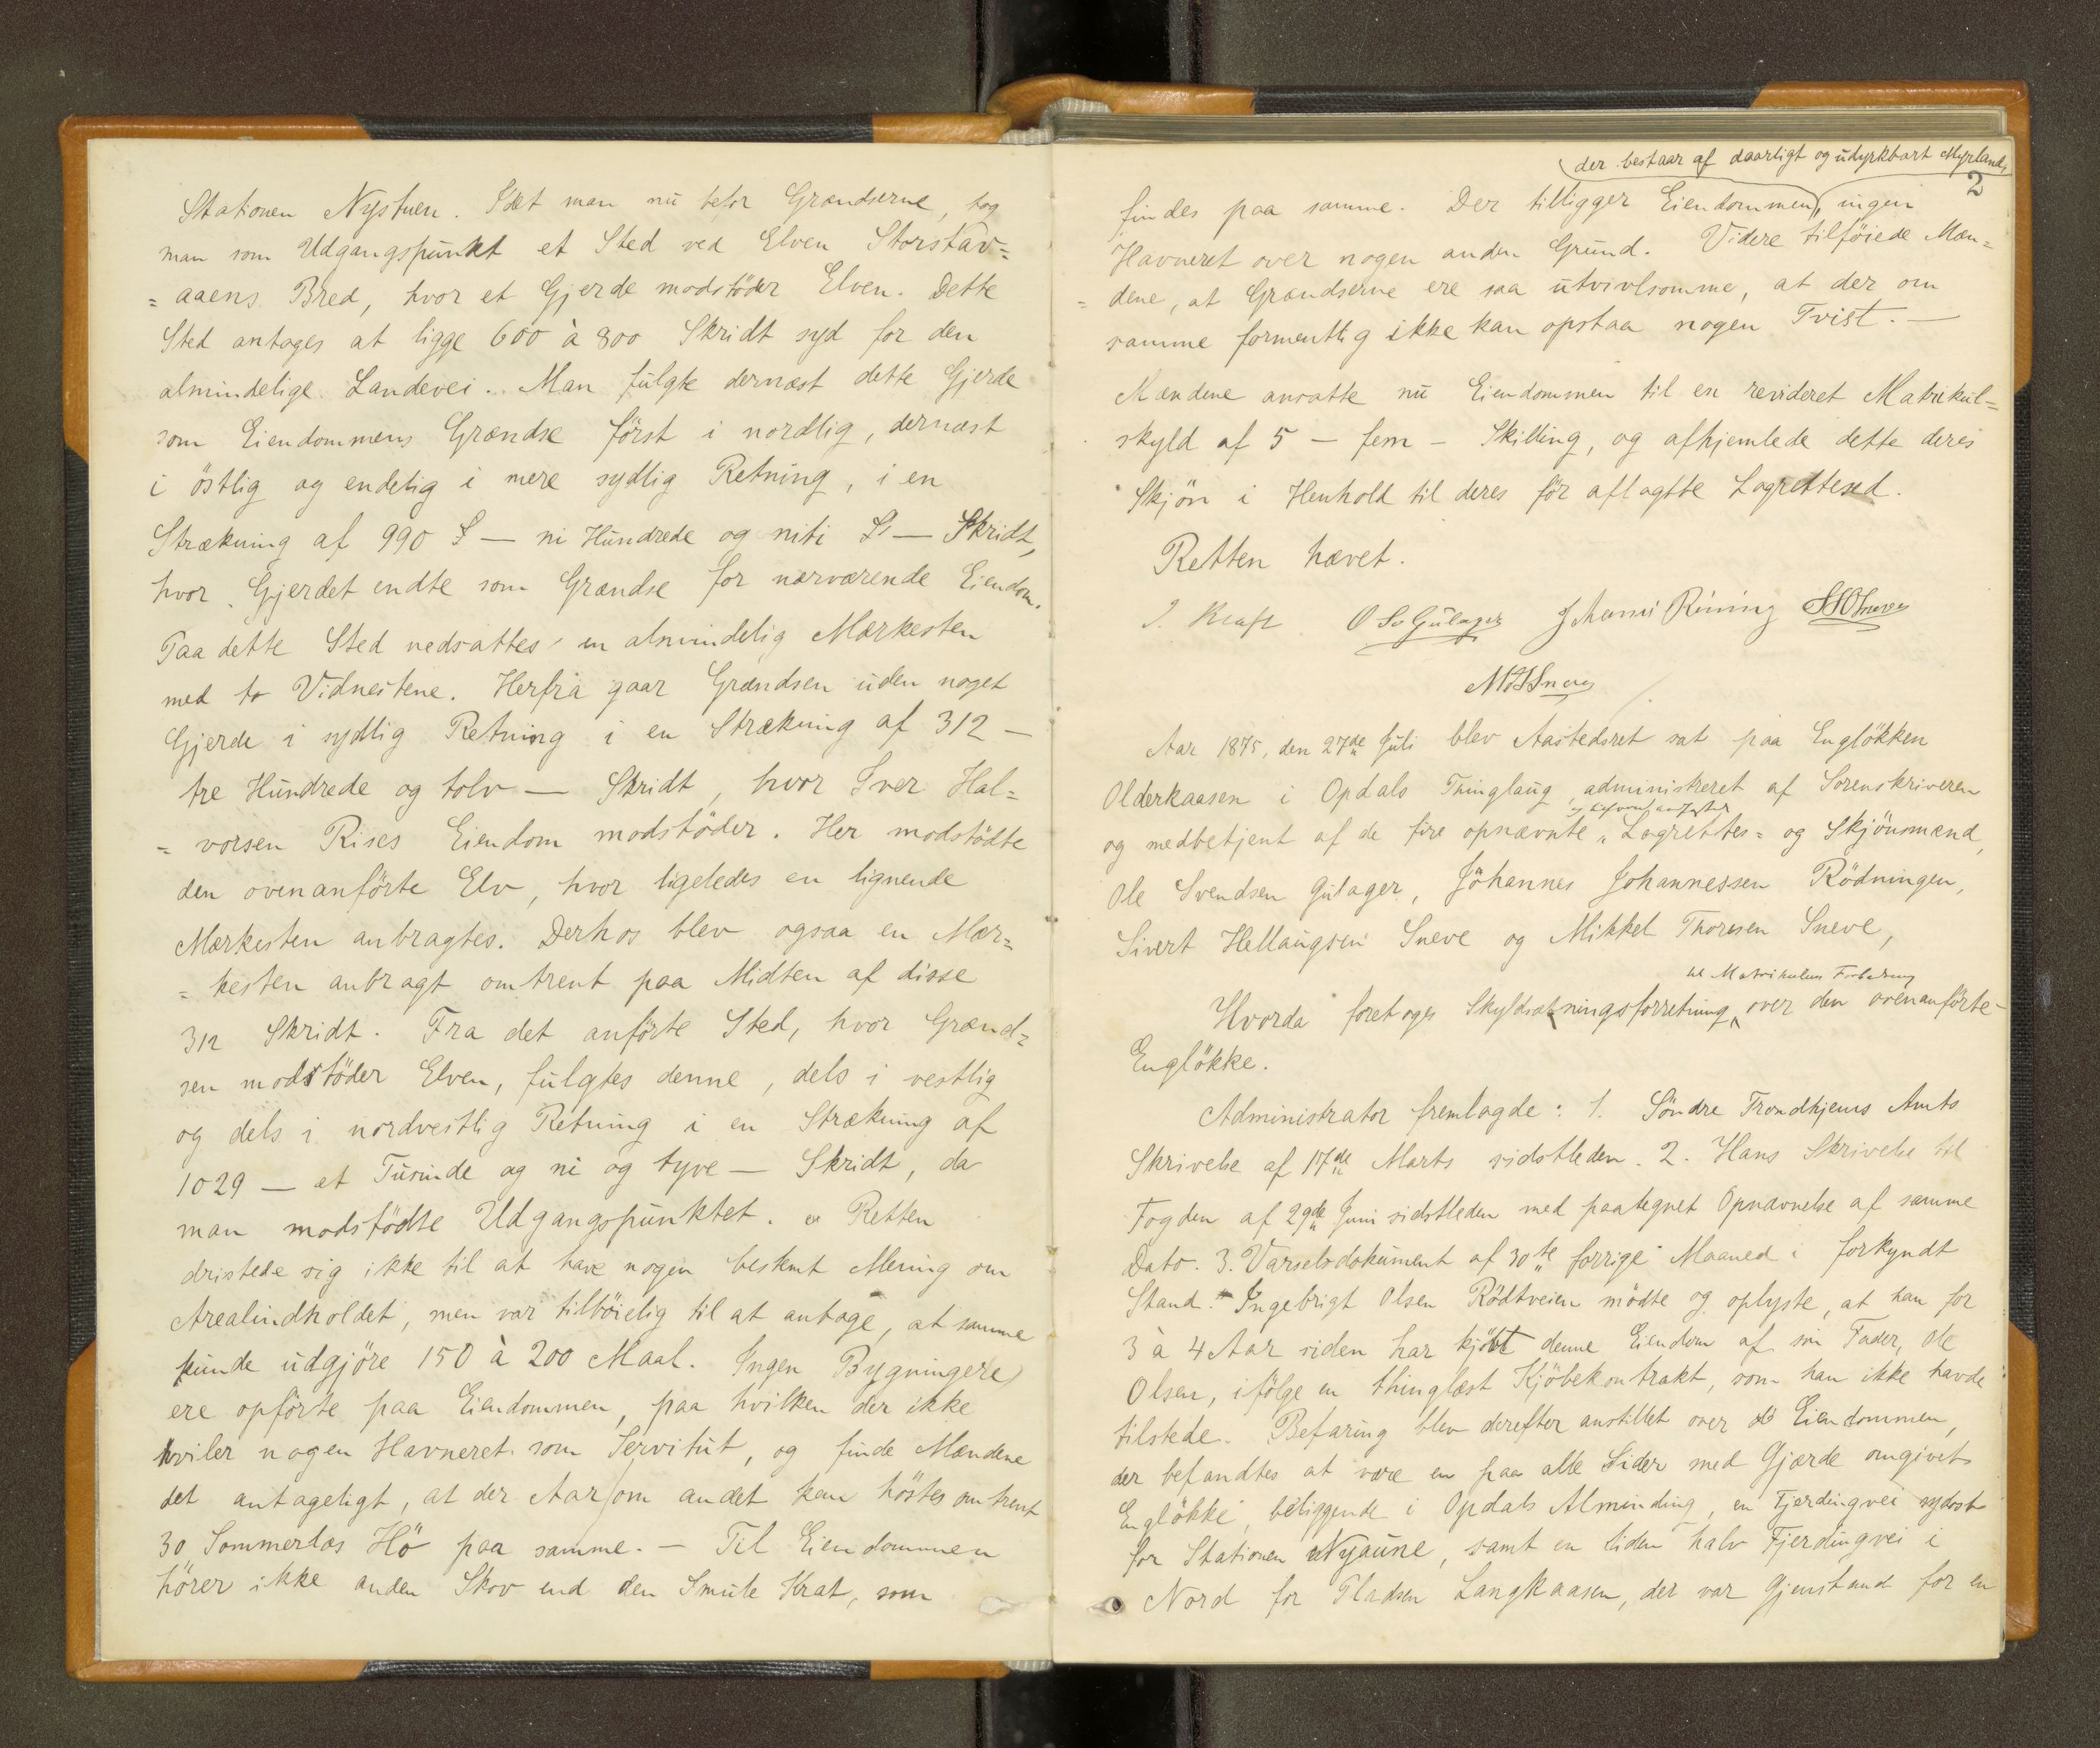 Stationen Nystuen. Idet man nu befor Grændserne, tog
man som Udgangspunkt et Sted ved Elven Storstav=
=aaens Bred, hvor et Gjerde modstöder Elven. Dette
Sted antages at ligge 600 à 800 Skridt syd for den
almindelige Landevei. Man fulgte dernæst dette Gjerde
som Eiendommens Grændse först i nordlig, dernæst
i östlig og endelig i mere sydlig Retning, i en
Strækning af 990 — ni Hundrede og niti — Skridt,
hvor Gjerdet endte som Grændse for nærværende Eiendom.
Paa dette Sted nedsattes en almindelig Mærkesten
med to Vidnestene. Herfra gaar Grændsen uden noget
Gjerde i sydlig Retning i en Strækning af 312 —
tre Hundrede og tolv — Skridt, hvor Iver Hal=
=vorsen Rises Eiendom modstöder. Her modstödte
den ovenanförte Elv, hvor ligeledes en lignende
Mærkesten anbragtes. Derhos blev ogsaa en Mær=
=kesten anbragt omtrent paa Midten af disse
312 Skridt. Fra det anförte Sted, hvor Grænd=
sen modstöder Elven, fulgtes denne, dels i vestlig
og dels i nordvestlig Retning i en Strækning af
1029 — et Tusinde og ni og tyve — Skridt, da
man modstödte Udgangspunktet. Retten
dristede sig ikke til at have nogen bestemt Mening om
Arealindholdet, men var tilböielig til at antage, at samme
kunde udgjöre 150 à 200 Maal. Ingen Bygninger
ere opförte paa Eiendommen, paa hvilken der ikke
hviler nogen Havneret som Servitut, og finde Mændene
det antageligt, at der Aar om andet kan höstes omtrent
30 Sommerlæs Hö paa samme. — Til Eiendommen
hörer ikke anden Skov end den Smule Krat, som
der bestaar af daarligt og udyrkbart Myrland,
2
findes paa samme. Der tilligger Eiendommen, ingen
Havneret over nogen anden Grund. Videre tilföiede Mæn=
=dene, at Grændserne ere saa utvivlsomme, at der om
samme formentlig ikke kan opstaa nogen Tvist. —
Mændene ansatte nu Eiendommen til en revideret Matrikul=
skyld af 5 — fem — Skilling, og afhjemlede dette deres
Skjön i Henhold til deres för aflagte Lagrettesed.
Retten hævet.
I. Kraft O Sv Gulager Johannes Röning SHSneve
MThSneve
Aar 1875, den 27de Juli blev Aastedsret sat paa Englökken
Olderkaasen i Opdals Thinglaug administreret af Sorenskriveren
og medbetjent af de fire opnævnte Lagrettes= og Skjönsmænd,
Ole Svendsen Gulager, Johannes Johannessen Rödningen,
Sivert Hellaugsen Sneve og Mikkel Thoresen Sneve,
til Matrikulens Forbedring
Hvorda foretoges Skyldsætningsforretning over den ovenanförte
Englökke.
Administrator fremlagde: 1. Söndre Trondhjems Amts
Skrivelse af 17de Marts sidstleden. 2. Hans Skrivelse til
Fogden af 29de Juni sidstleden med paategnet Opnævnelse af samme
Dato. 3. Varselsdokument af 30te forrige Maaned i forkyndt
Stand. Ingebrigt Olsen Rödtveien mödte og oplyste, at han for
3 à 4 Aar siden har kjöbt denne Eiendom af sin Fader, Ole
Olsen, ifölge en thinglæst Kjöbekontrakt, som han ikke havde
tilstede. Befaring blev derefter anstillet over Eiendommen,
der befandtes at være en paa alle Sider med Gjærde omgivet
Englökke, beliggende i Opdals Alminding, en Fjerdingvei sydost
for Stationen Nyaune, samt en liden halv Fjerdingvei i
Nord for Pladsen Langkaasen, der var Gjenstand for en